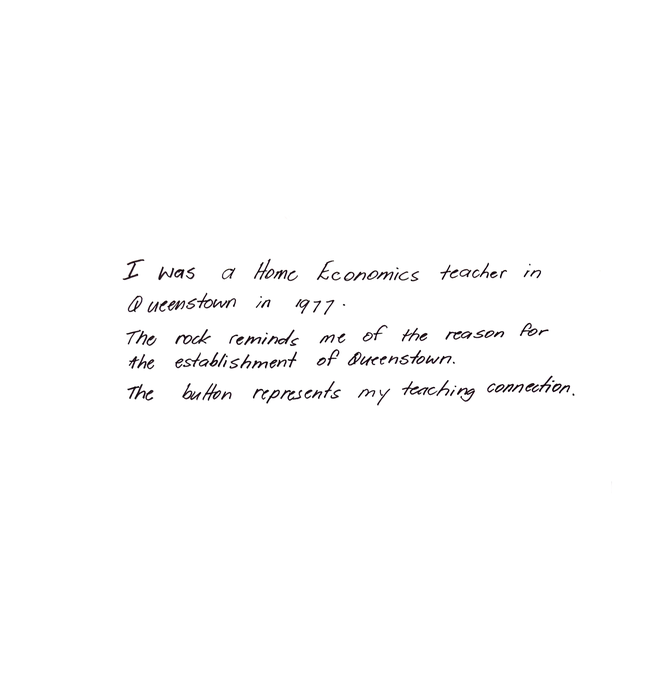 I was a Home Economics teacher in
Queenstown in 1977.
The rock reminds me of the reason for
the establishment of Queenstown.
The button represents my teaching connection.